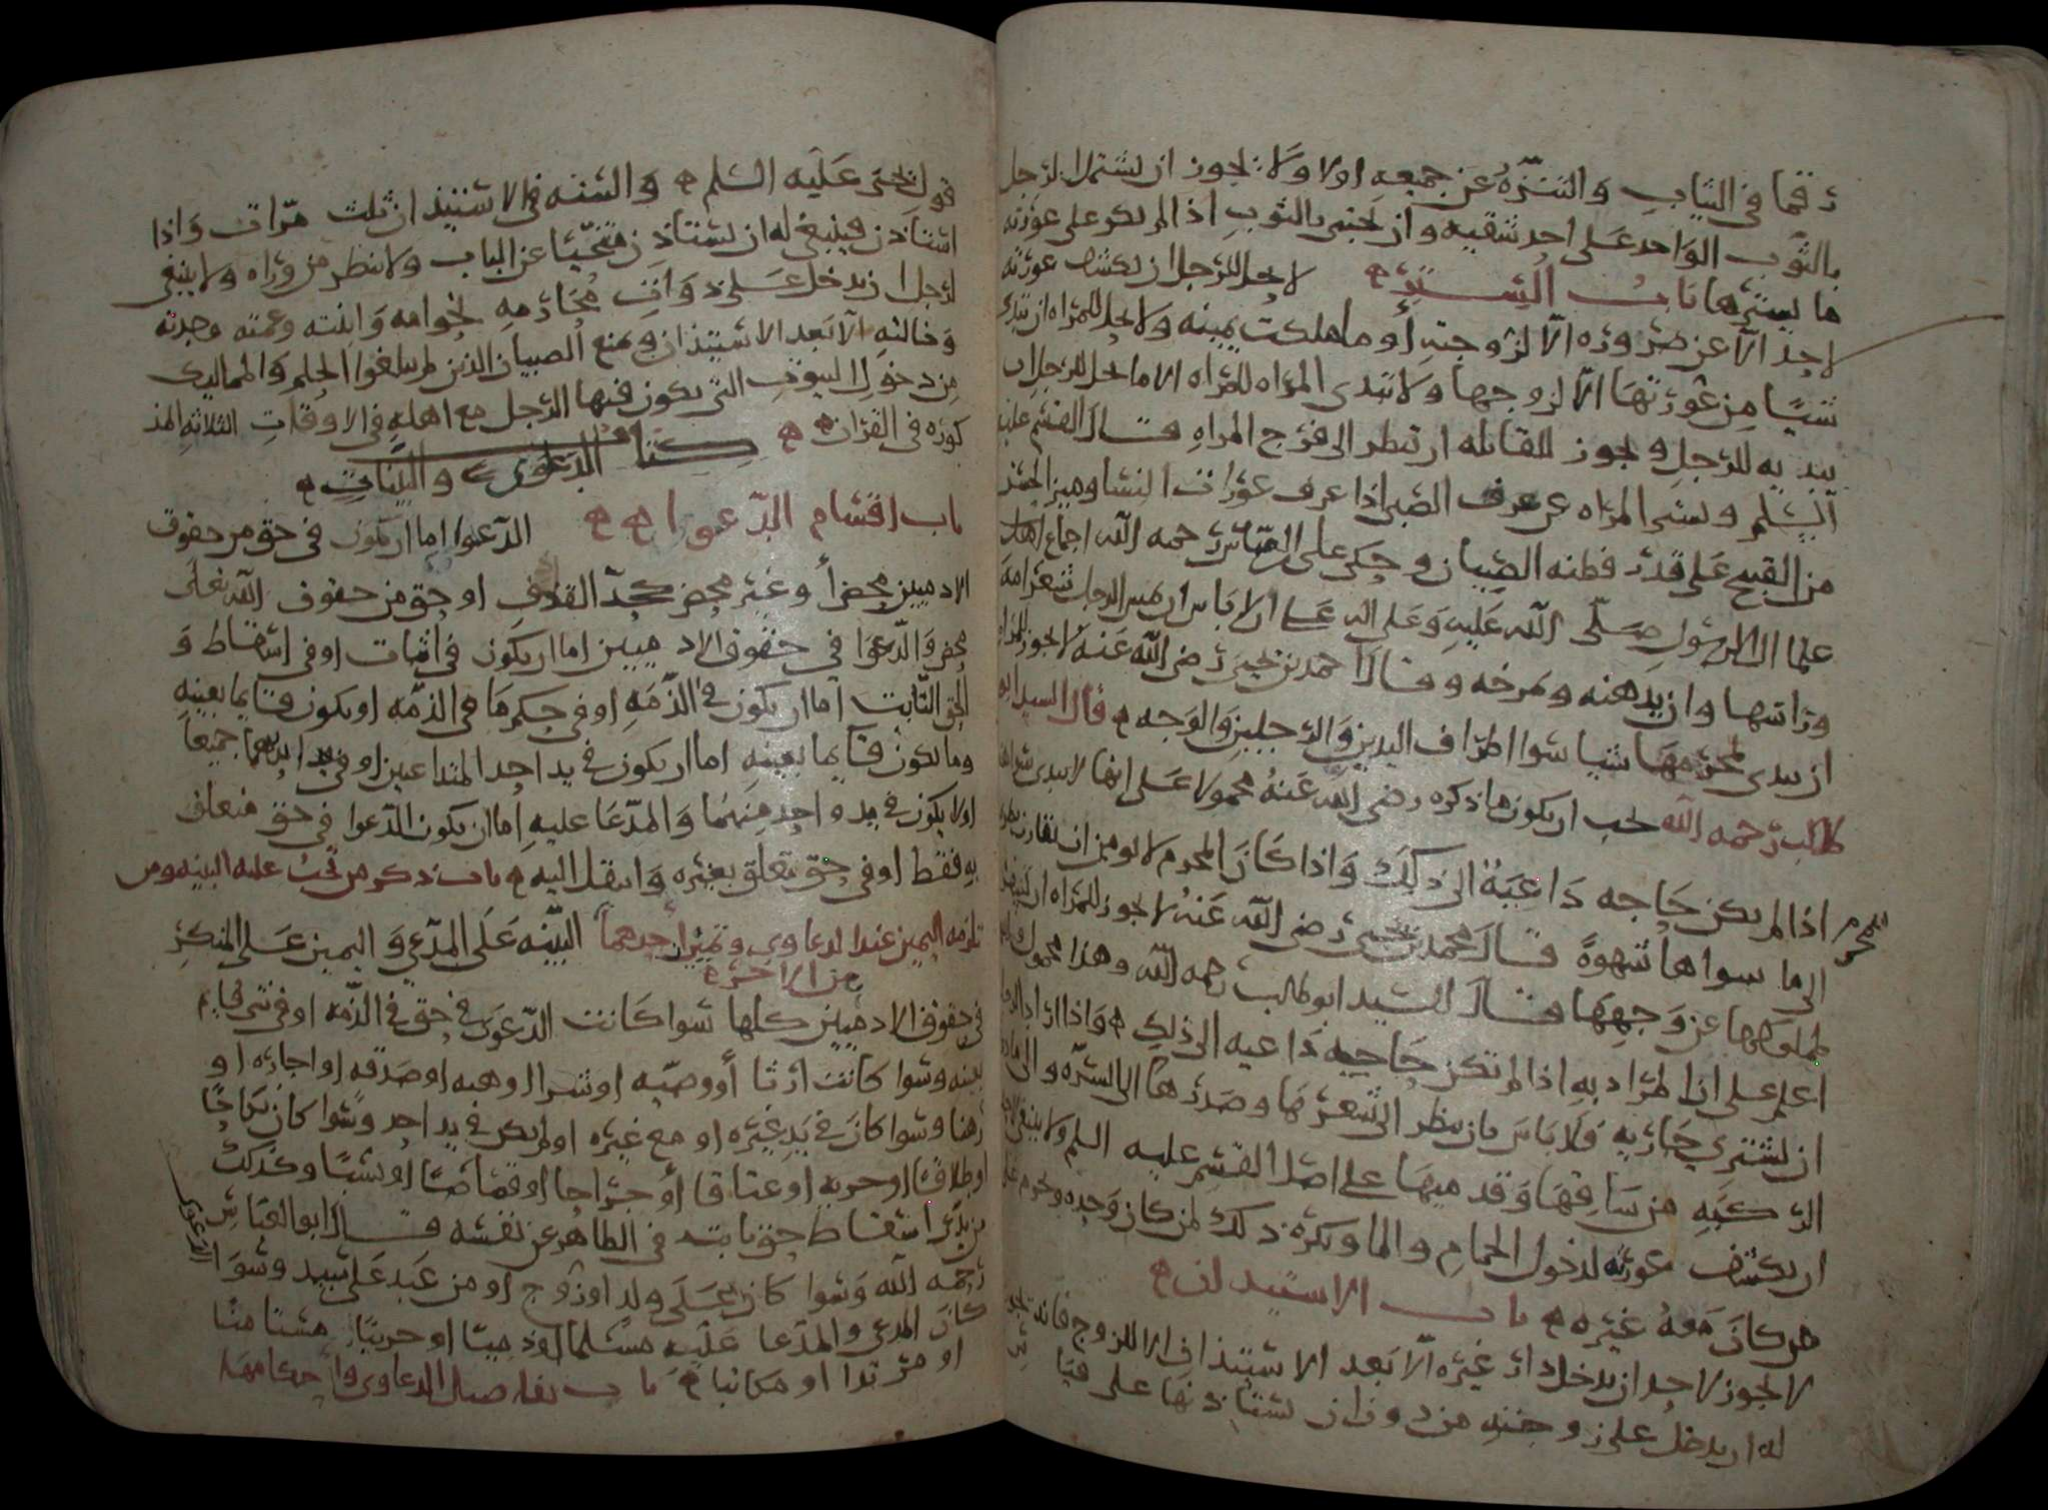 رقما في الثياب والتنزه عن جميعه اولا ولا يجوز ان يشتمل الرجل
بالثوب الواحد على احد شقيه وان يحتبي بالثوب اذا لم يكن على عورته
ما يسترها باب الستر لا يحل للرجل ان يكشف عورته
لاحد الا عن ضرورة الا لزوجته أو ما ملكت يمينه ولا يحل للمراه ان تبدي
شيئا من عورتها الا لزوجها ولا تبدي المراه للمراه الا ما يحل للرجل ان
يبديه للرجل ويجوز للقابله ان تنظر الى فرج المراه قال القسم عليه
السلم وتستر المراه عن عرف الصبي اذا عرف عورات النسا وميز الحسن
من القبيح على قدر فطنه الصبيان وحكى على العباس رحمه الله اجماع اهل
علما ال الرسول صلى الله عليه وعلى اله على ان لا باس ان يمس الرجل شعر امه
وراسها وان يدهنه ويمرخه وقال احمد بن يحيى رضي الله عنه لا يجوز للمراه
ان تبدي لمحرمها شيا سوا اطراف اليدين والرجلين والوجه قال السيد ابو
طالب رحمه الله يجب ان يكون ما ذكره رضي الله عنه محمولا على انها لا تبدي سواها
اذا لم يكن حاجه داعية الى ذلك واذا كان المحرم لا يومن ان
المحرم
الى ما سواها شهوة قال محمد بن يحيى رضي الله عنه لا يجوز للمراه ان
لمملوكها عن وجهها قال السيد ابو طالب رحمه الله وهذا محمول
اعلم على ان المراد به اذا لم تكن حاجه داعيه الى ذلك واذا اراد الرجل
ان يشتري جاريه فلا باس بان ينظر الى شعرها وصدرها الى السره والى ما دون
الركبه من ساقها وقدميها على اصل القسم عليه السلم ولا ينبغي لاحد
ان يكشف عورته لدخول الحمام والما ويكره ذلك لمن كان وحده ويحرم على
من كان معه غيره باب الاستيذان
لا يجوز لاحد ان يدخل دار غيره الا بعد الاستيذان الا الزوج فانه يجوز
له ان يدخل على زوجته من دون ان يستاذنها على قيا
س
قول يحيى عليه السلم والسنه في الاستيذان ثلث مرات واذا
استاذن فينبغي له ان يستاذن متنحيا عن الباب ولا ينظر من وراه ولا ينبغي
لرجل ان يدخل على ذوات محارمه كامه وابنته وعمته وجدته
وخالته الا بعد الاستيذان ويمنع الصبيان الذين لم يبلغوا الحلم والمماليك
من دخول البيوت التي يكون فيها الرجل مع اهله في الاوقات الثلاثه المذ
كوره في القران كتاب الدعوى والبينات
باب اقسام الدعوا الدعوا اما ان يكون في حق من حقوق
الادميين محضا وغير محض كحد القذف او حق من حقوق الله تعلى
محض والدعوا في حقوق الادميين اما ان يكون في اثبات او في اسقاط و
الحق الثابت اما ان يكون في الذمه او في حكم ما في الذمه او يكون قايما بعينه
وما يكون قايما بعينه اما ان يكون في يد احد المتداعيين او في ايديهما جميعا
او لا يكون في يد واحد منهما والمدعا عليه اما ان يكون الدعوا في حق متعلق
به فقط او في حق تعلق بغيره وانتقل اليه باب ذكر من تجب عليه البينه ومن
تلزمه اليمين عند الدعاوى وتميز احدهما البينه على المدعي واليمين على المنكر
من الاخر
في حقوق الادميين كلها سوا كانت الدعوى في حق في الذمه او في شي قايم
بعينه وسوا كانت ارثا أو وصيه او شرا او هبه او صدقه او اجاره او
رهنا وسوا كان في يد غيره او مع غيره او لم يكن في يد احد وسوا كان نكاحا
او طلاقا او حريه او عتاقا أو جراحا او قصاصا او نسبا وكذلك
من يدعي اسقاط حق ثابت في الظاهر عن نفسه قال ابو العباس
الدعوى
رحمه الله وسوا كان على ولد او زوج او من عبد على سيد وسوا
كان المدعي والمدعا عليه مسلما او ذميا او حربيا مستامنا
او مرتدا او مكاتبا باب تفاصيل الدعاوى واحكامها